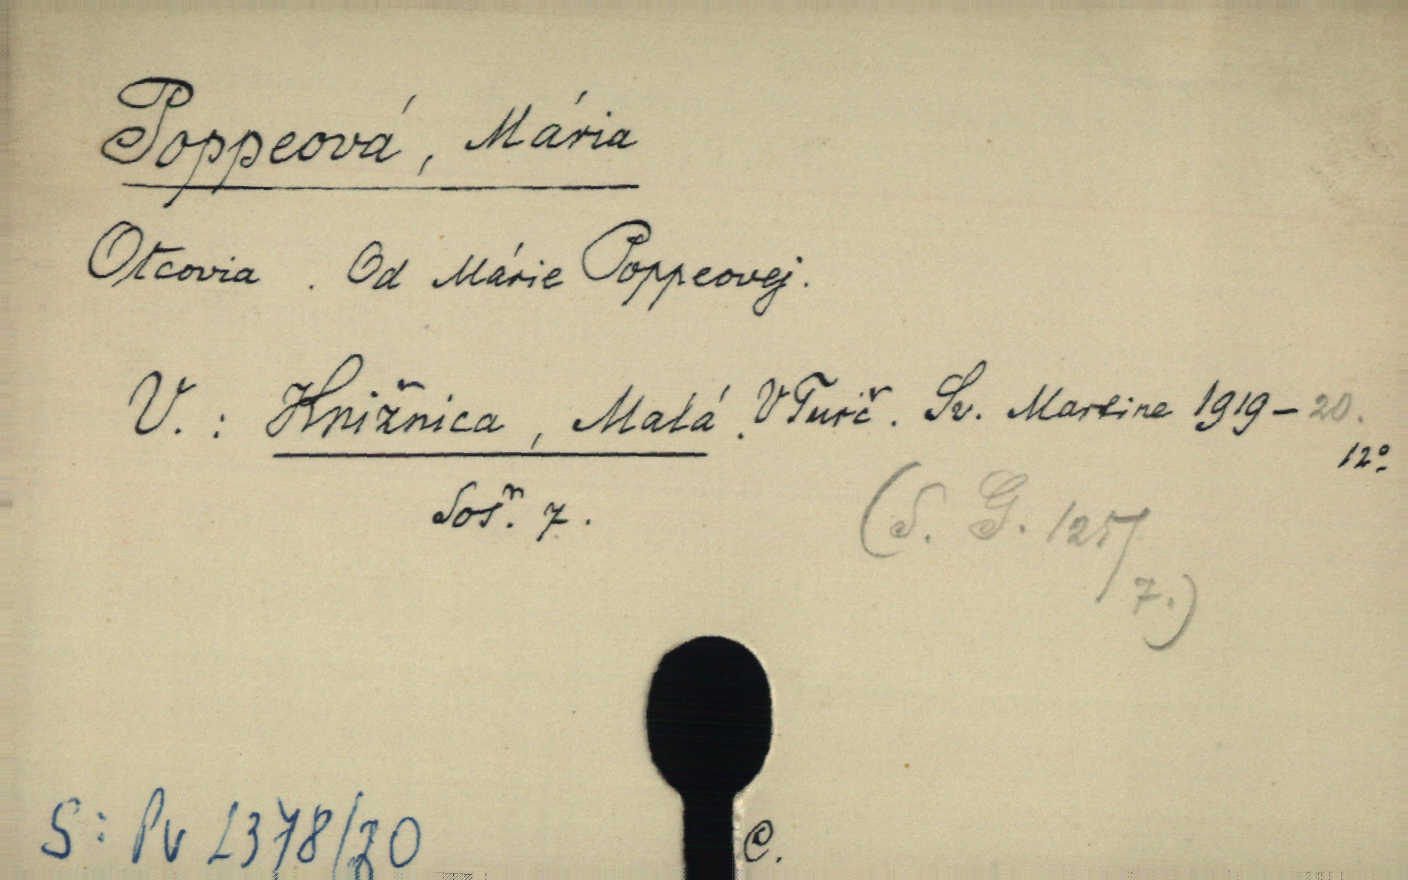 Poppeová, Mária
Otcovia . Od Márie Poppeovej.
V. : Knižnica, Malá. V Turč. Sv. Martine 1919–20.
12°
Soš. 7.
(S. G. 125/7.)
S: Pv 2378/
C.